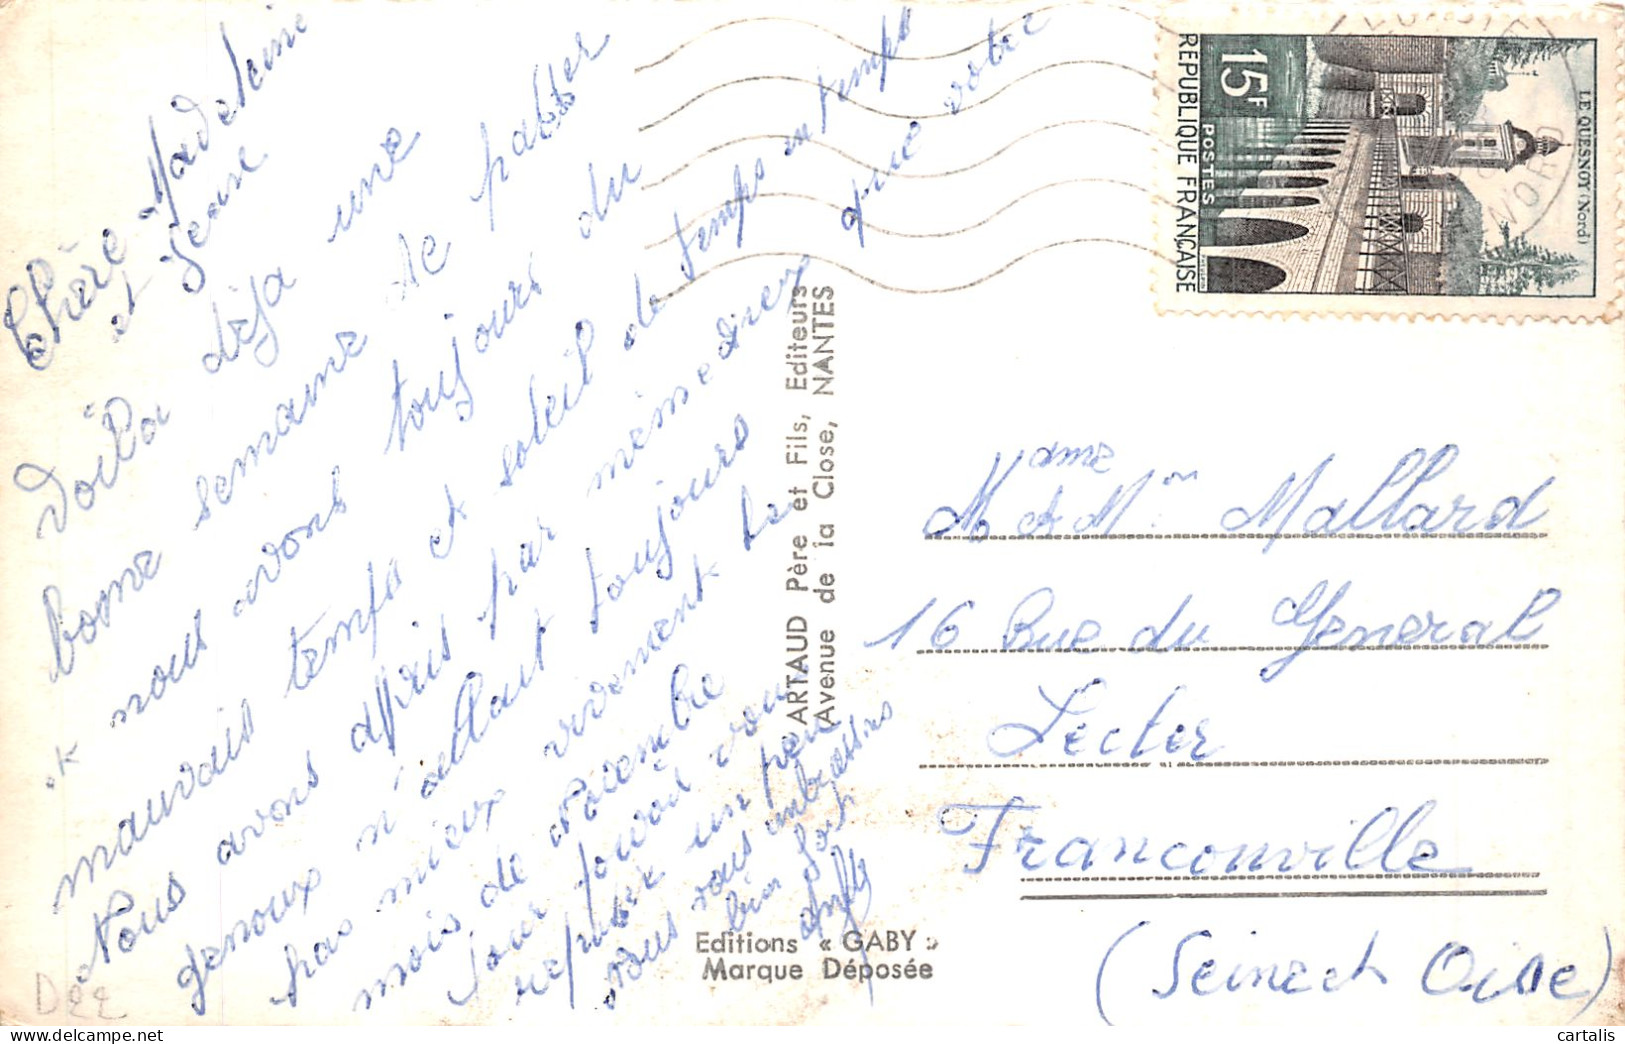 Chère Madeleine
et Jean
Voila déja une
bonne semaine de passer
et nous avons toujours du
mauvais temps et soleil de temps en temps
Nous avons appris par mémé dire que votre
genoux n'allant toujours
pas mieux vivement le
mois de Novembre
pour pouvoir vous
reposer un peu
vous embrassons
bien fort
ARTAUD Père et Fils, Editeurs
Avenue de la Close, NANTES
Editions « GABY »
Marque Déposée
D22
15F
POSTES
REPUBLIQUE FRANÇAISE
LE QUESNOY (Nord)
NORD
Mame & Mr Mallard
16 Rue du General
Lecter
Franconville
(Seine et Oise)
cartalis.com